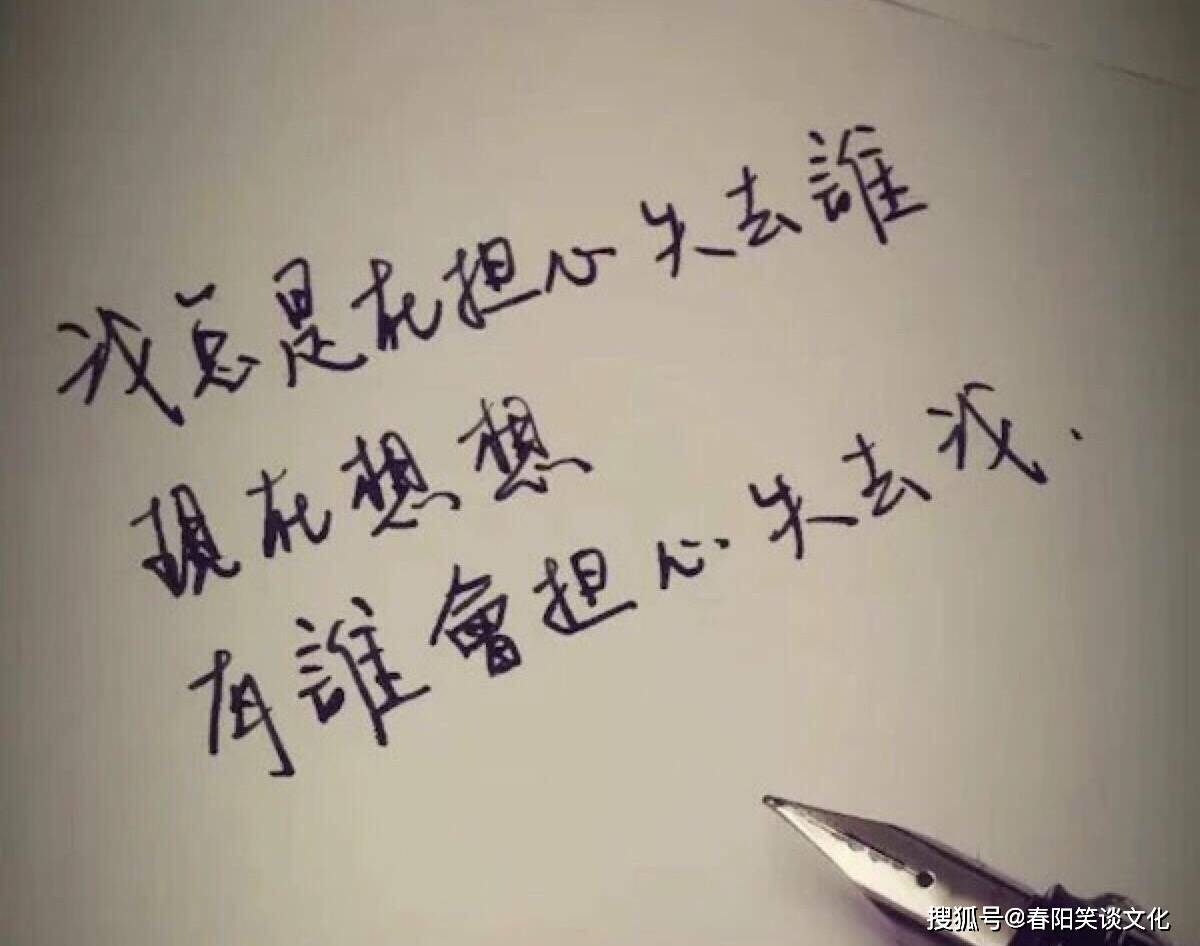 我总是在担心失去誰
現在想想
有誰會担心失去我.
搜狐号@春阳笑谈文化